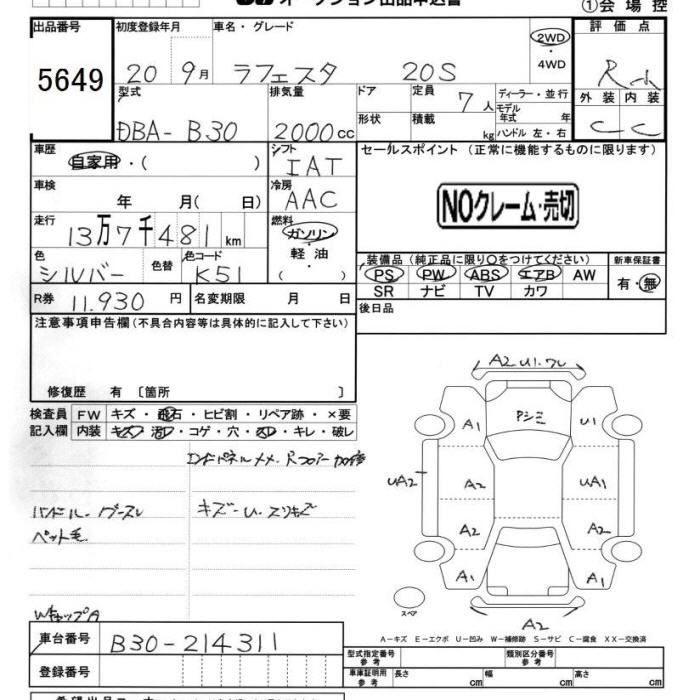 オークション出品申込書
①会場控
出品番号 初度登録年月 車名・グレード 2WD・4WD 評価点
5649 20 9月 ラフェスタ 20S R-A
型式 排気量 ドア 定員 7人 ディーラー・並行 外装 内装
DBA-B30 2000cc 形状 積載 kg モデル年式 年 ハンドル 左・右 C C
車歴 自家用・( ) シフト IAT セールスポイント (正常に機能するものに限ります)
車検 年 月( 日) 冷房 AAC
NOクレーム・売切
走行 13万7千481km 燃料 ガソリン・軽油・( )
色 シルバー 色替 色コード K51
装備品 (純正品に限り○をつけてください) 新車保証書
PS PW ABS エアB AW 有・無
SR ナビ TV カワ
R券 11,930円 名変期限 月 日 後日品
注意事項申告欄(不具合内容等は具体的に記入して下さい)
修復歴 有 〔箇所 〕
検査員 FW キズ・飛石・ヒビ割・リペア跡・×要
記入欄 内装 キズ・汚・コゲ・穴・スレ・キレ・破レ
ハンドル・
ペット毛
キズ-U.スリキズ
WキャップA
A2 U1.ワレ
Pシミ
A1 U1
UA2 A2 UA1
A2 A2
A1 A1
スペア A2
A-キズ E-エクボ U-凹み W-補修跡 S-サビ C-腐食 XX-交換済
車台番号 B30-214311
型式指定番号 参考 類別区分番号 参考
登録番号 車庫証明用 参考 長さ cm 幅 cm 高さ cm